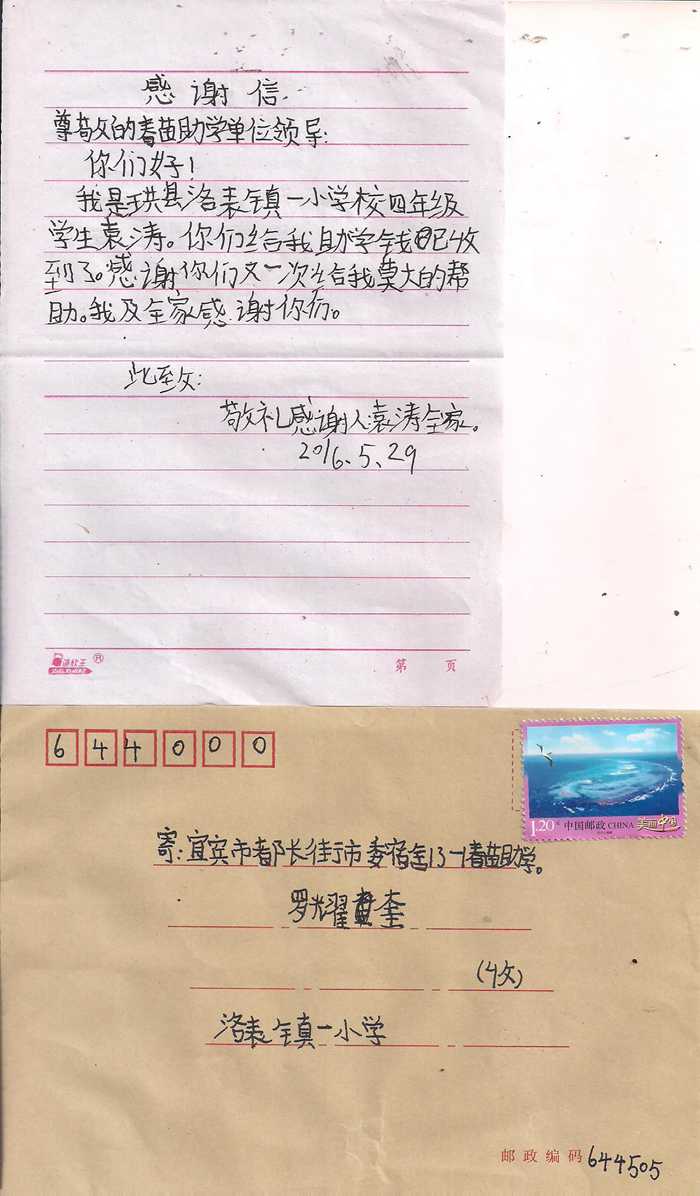 感谢信.
尊敬的春苗助学单位领导:
你们好!
我是珙县洛表镇一小学校四年级
学生袁涛。你们给我助学钱已收
到了。感谢你们又一次给我莫大的帮
助。我及全家感谢你们。
此至敬:
敬礼感谢人:袁涛全家。
2016.5.29
第 页
644000
1.20元 中国邮政 CHINA 美丽中国
寄:宜宾市都长街市委宿舍13-1春苗助学。
罗耀奎
(收)
洛表镇一小学
邮政编码 644505